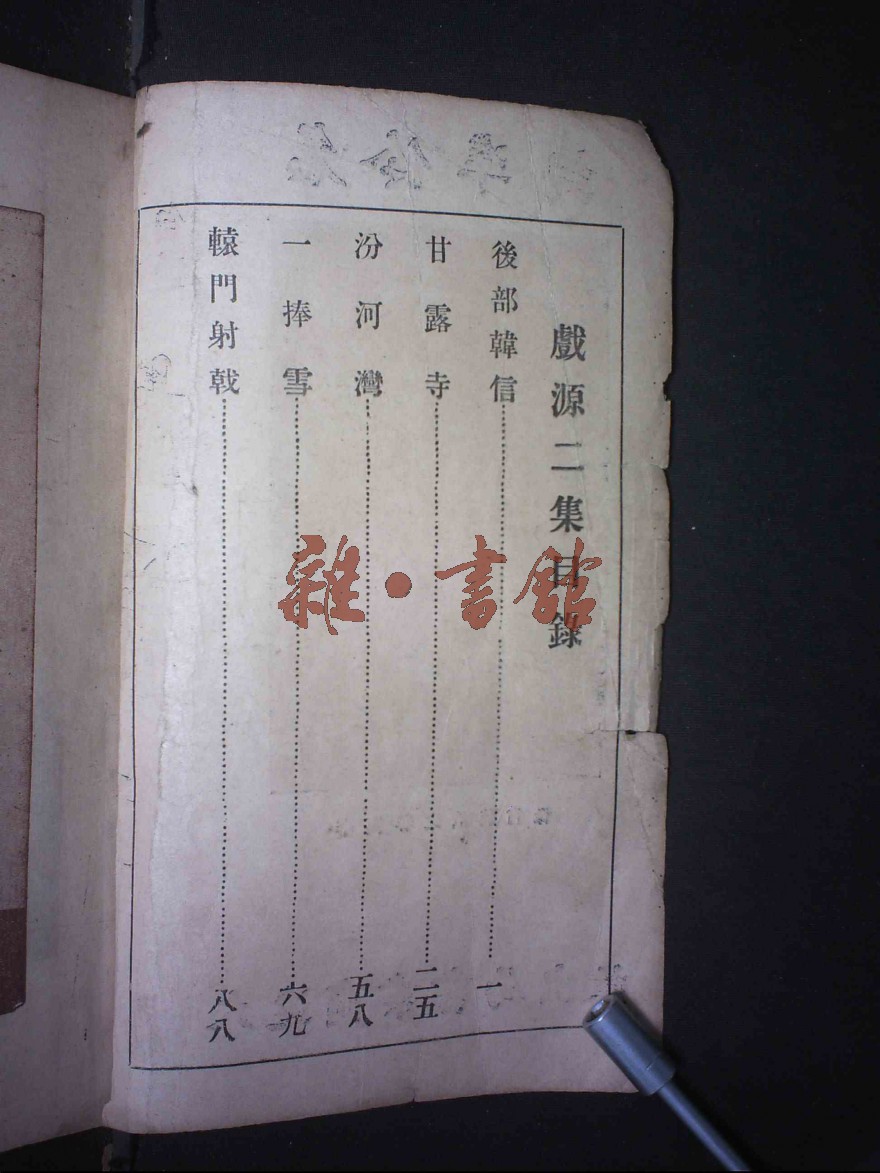 戲源二集目錄
後部韓信⋯⋯一
甘露寺⋯⋯二五
汾河灣⋯⋯五八
一捧雪⋯⋯六九
轅門射戟⋯⋯八八
雜·書館